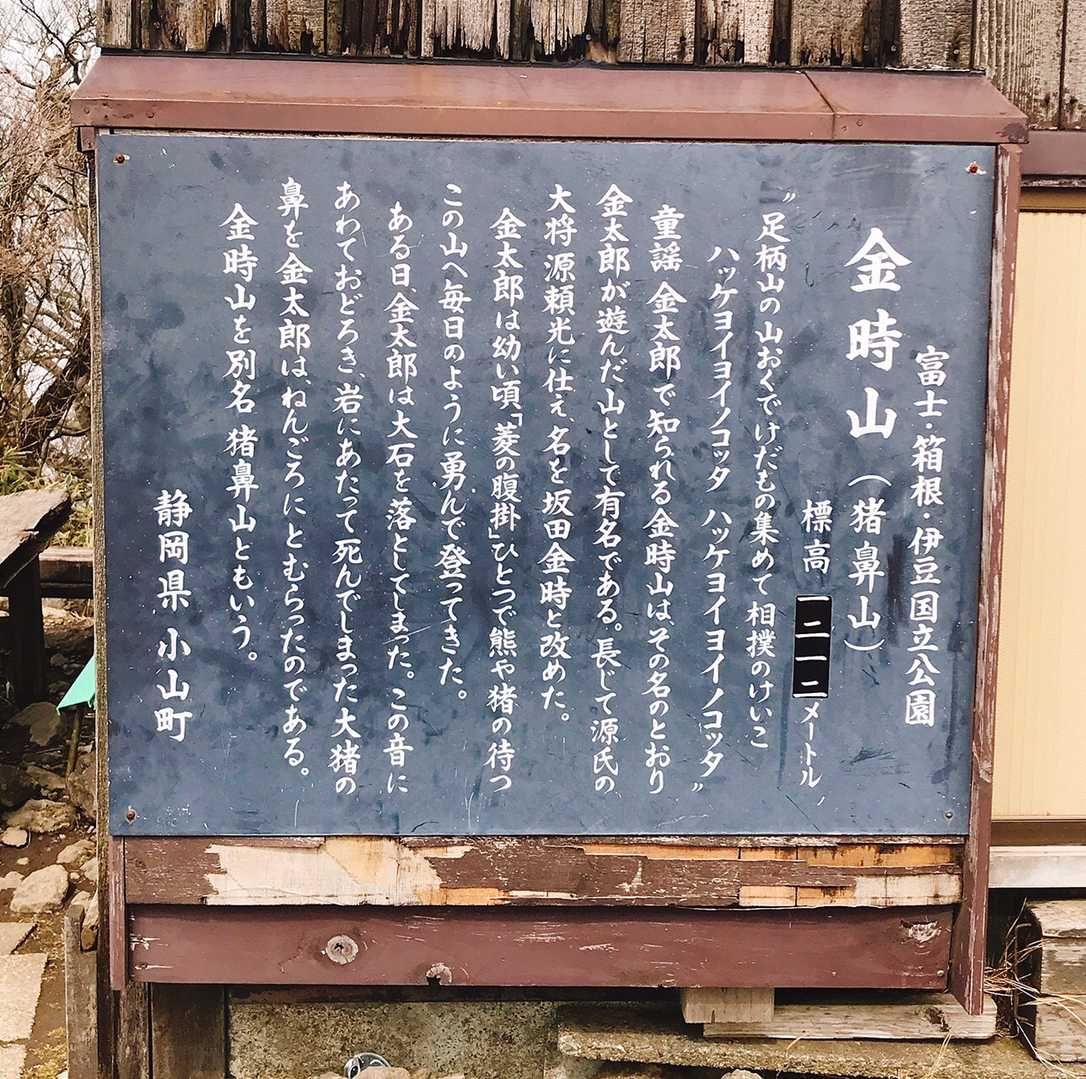 富士・箱根・伊豆国立公園
金時山（猪鼻山）
標高 一二一二メートル
〝足柄山の山おくでけだもの集めて相撲のけいこ
ハッケヨイヨイノコッタ ハッケヨイヨイノコッタ〟
童謡 金太郎で知られる金時山は、その名のとおり
金太郎が遊んだ山として有名である。長じて源氏の
大将源頼光に仕え、名を坂田金時と改めた。
金太郎は幼い頃「菱の腹掛」ひとつで熊や猪の待つ
この山へ毎日のように勇んで登ってきた。
ある日、金太郎は大石を落としてしまった。この音に
あわておどろき、岩にあたって死んでしまった大猪の
鼻を金太郎は、ねんごろにとむらったのである。
金時山を別名 猪鼻山ともいう。
静岡県 小山町